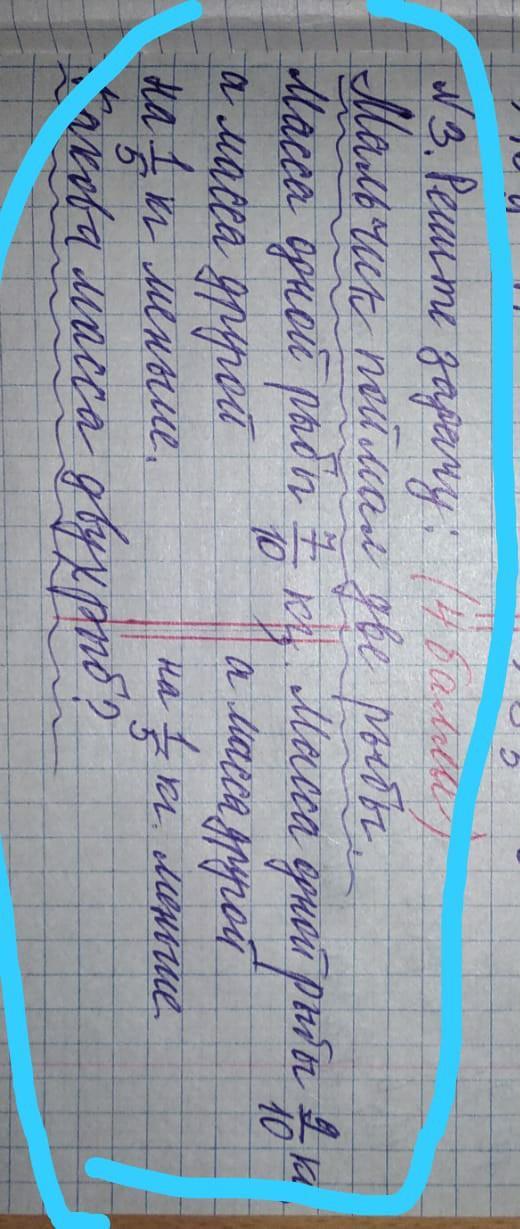 N3. Решите задачу: (4 баллы)
Мальчик поймал две рыбы.
Масса одной рыбы 7/10 кг, Масса одной рыбы 9/10 кг
а масса другой а масса другой
на 1/5 кг меньше. на 1/5 кг. меньше
Какова масса двух рыб?